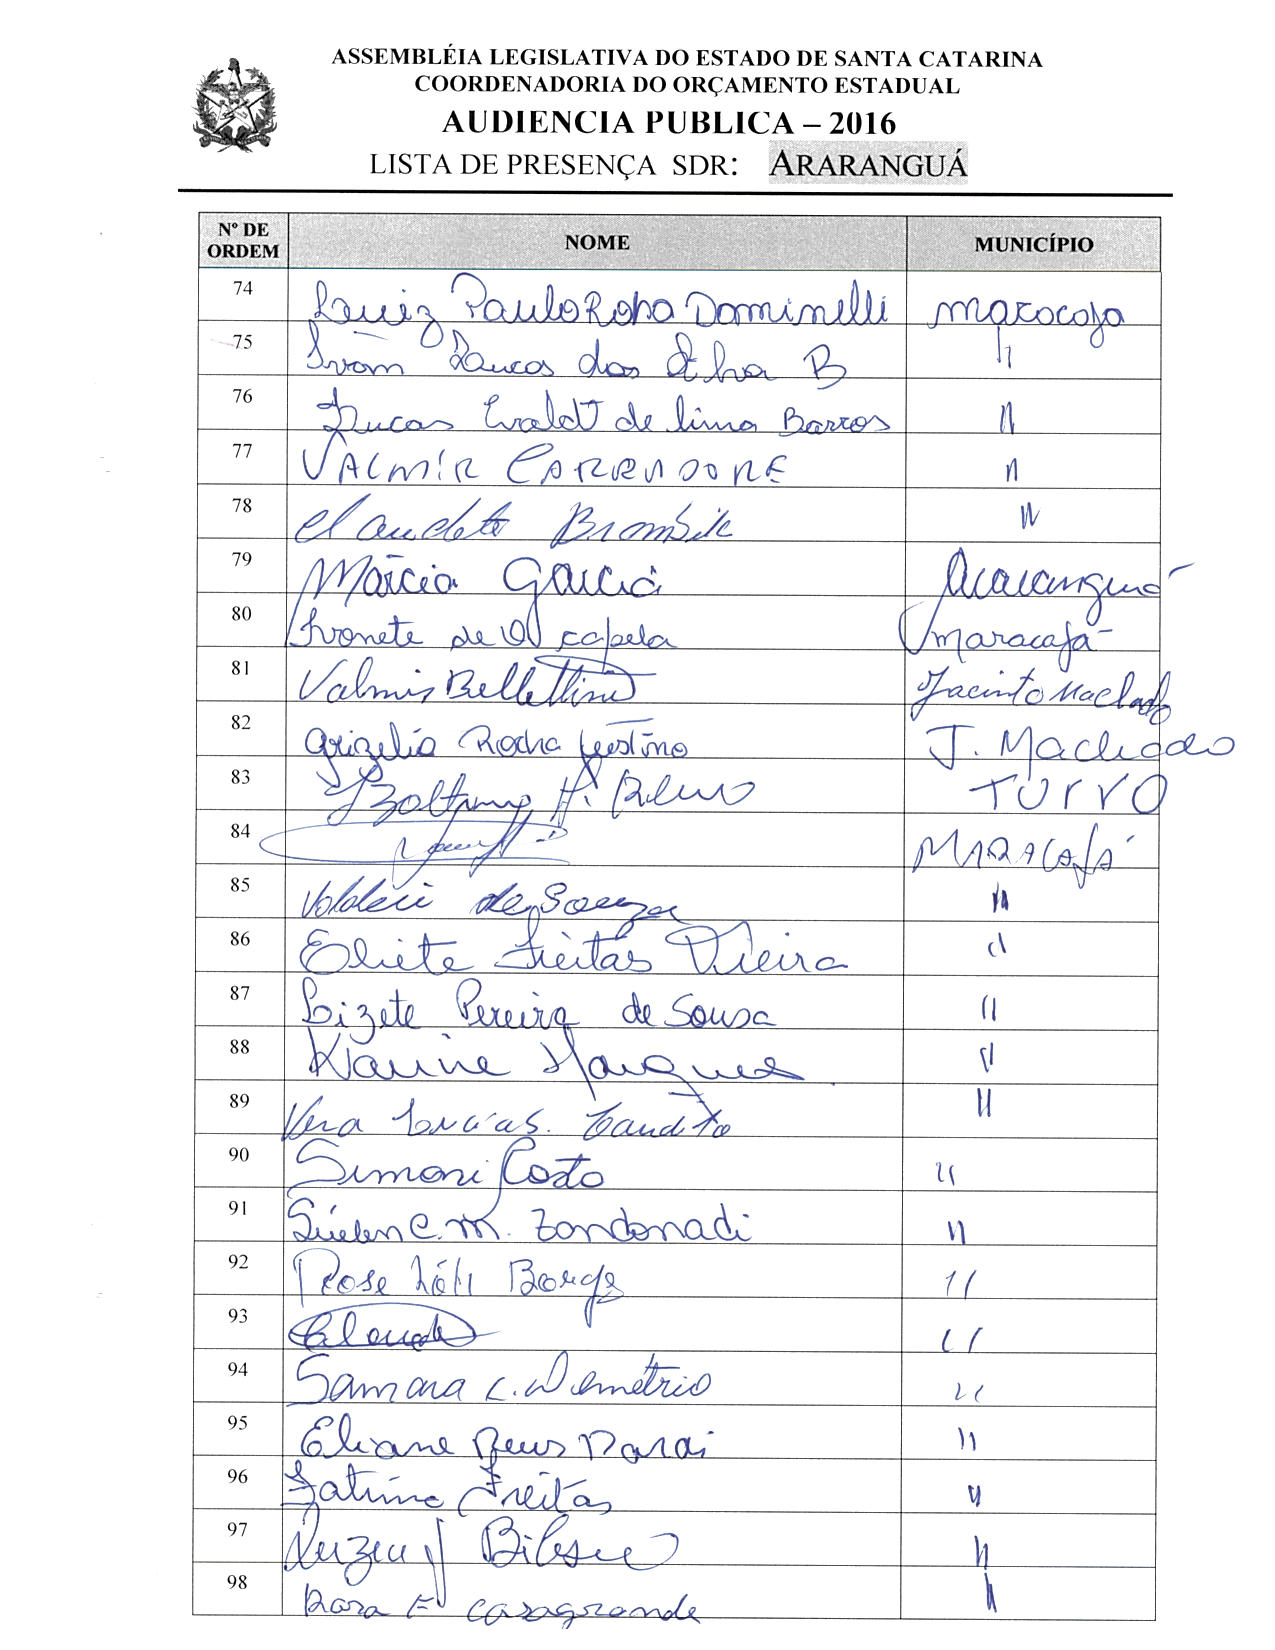 ASSEMBLÉIA LEGISLATIVA DO ESTADO DE SANTA CATARINA
COORDENADORIA DO ORÇAMENTO ESTADUAL
AUDIENCIA PUBLICA – 2016
LISTA DE PRESENÇA SDR: ARARANGUÁ
Nº DE ORDEM NOME MUNICÍPIO
74 Luiz Paulo Rosa Dominelli Maracaja
75 Ivam Lucas dos B "
76 Lucas Evaldt de lima Barros "
77 VALMIR "
78 Claudete "
79 Márcia Garcia Araranguá
80 Ivonete de capela Maracajá
81 Valmir Bellettini Jacinto Machado
82 Grizelia Rocha Justino J. Machado
83 H. TURVO
84 MARACAJÁ
85 Valdeci de Souza "
86 Eliete Freitas Vieira "
87 Lizete Pereira de Sousa "
88 Karine Marques "
89 Vera Lucia S. "
90 Simoni Costo "
91 Súelen C. M. Zondonadi "
92 Rose Borges "
93 "
94 Samara C. Demétrio "
95 Eliane "
96 Fatima Freitas "
97 "
98 Rosa E casagrande "